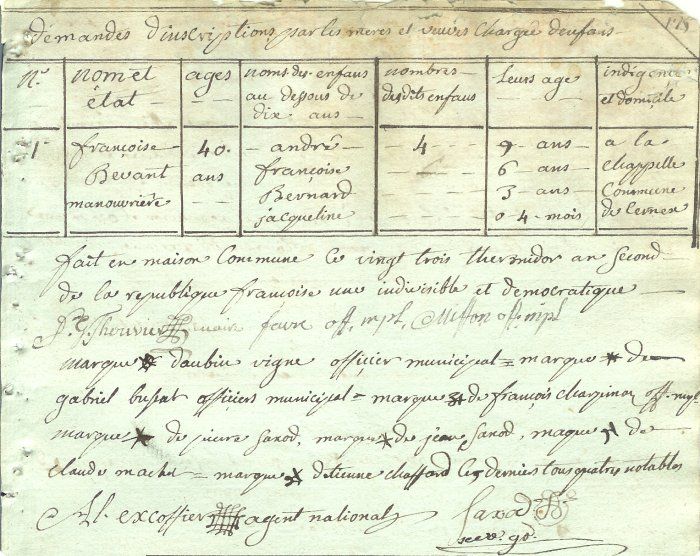 demandes d'inscriptions par les meres et veuves chargée denfans
n.º
nom et état
ages
noms des enfans au dessous de dix ans
nombres desdits enfans
leurs age
indigence et domicile
1
françoise Bevant manouvriere
40. ans
andré
françoise
Bernard
jacqueline
4
9 ans
6 ans
3 ans
0 4 mois
a la chappelle Commune de Cernex
fait en maison Commune ce vingt trois thermidor an second
de la republique françoise une indivisible et democratique
maire favre off. mpl. off. mpl
marque d'aubin vigne officier municipal = marque de
gabriel officiers municipal = marque de françois charpinaz off. mpl
marque de pierre saxod, marque de jean saxod, maque de
claude = marque detienne chaffard ces derniers tous quatres notables
excoffier agent national saxod